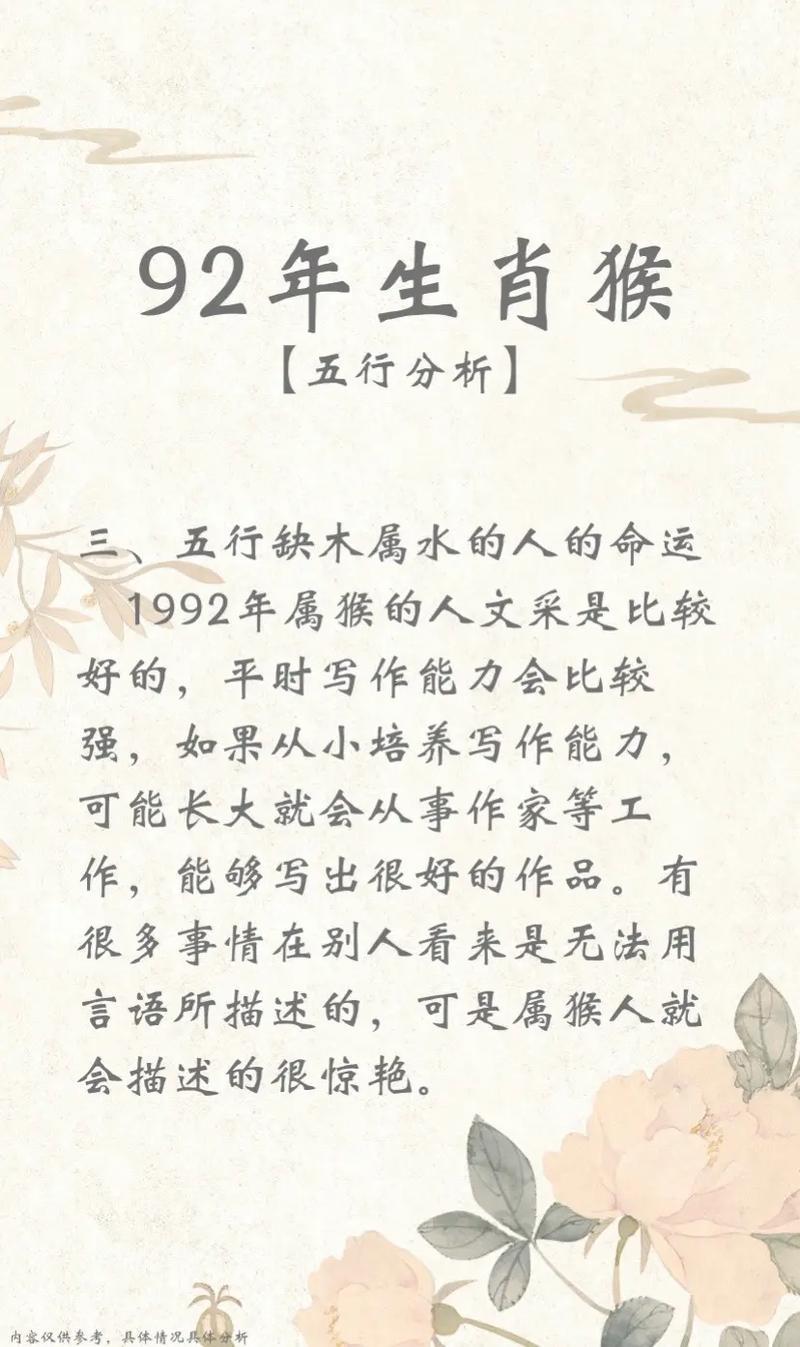 92年生肖猴
【五行分析】
三、五行缺木属水的人的命运
1992年属猴的人文采是比较
好的，平时写作能力会比较
强，如果从小培养写作能力，
可能长大就会从事作家等工
作，能够写出很好的作品。有
很多事情在别人看来是无法用
言语所描述的，可是属猴人就
会描述的很惊艳。
内容仅供参考，具体情况具体分析